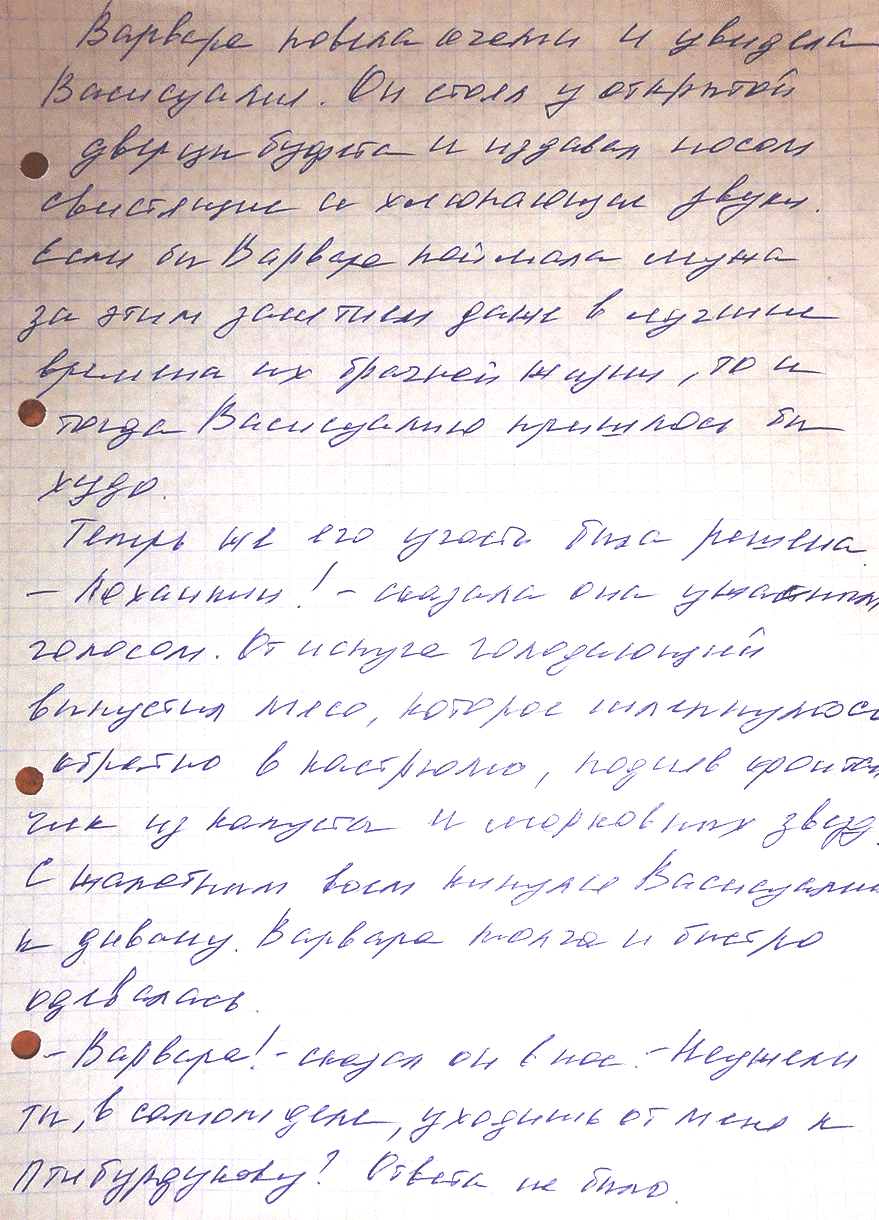 Варвара повела очами и увидела
Васисуалия. Он стоял у открытой
дверцы буфета и издавал носом
свистящие и хлюпающие звуки.
Если бы Варвара поймала мужа
за этим занятием даже в лучшие
времена их брачной жизни, то и
тогда Васисуалию пришлось бы
худо.
Теперь же его участь была решена.
- Лоханкин! - сказала она ужасным
голосом. От испуга голодающий
выпустил мясо, которое шлепнулось
обратно в кастрюлю, подняв фонтан
чик из капусты и морковных звезд.
С жалобным воем кинулся Васисуалий
к дивану. Варвара молча и быстро
одевалась.
- Варвара! - сказал он в нос. - Неужели
ты, в самом деле, уходишь от меня к
Птибурдукову? Ответа не было.